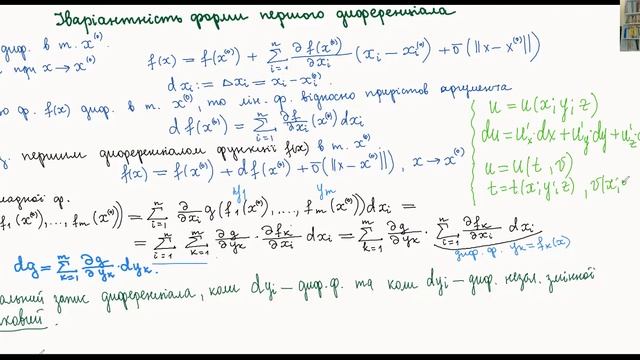 Інваріантність форми першого диференціала
диф. в т. x⁽⁰⁾.
при x → x⁽⁰⁾ f(x) = f(x⁽⁰⁾) + Σᵢ₌₁ⁿ ∂f(x⁽⁰⁾)/∂xᵢ (xᵢ − xᵢ⁽⁰⁾) + o̅(‖x − x⁽⁰⁾‖)
dxᵢ := Δxᵢ = xᵢ − xᵢ⁽⁰⁾.
ф. f(x) диф. в т. x⁽⁰⁾, то лін. ф. відносно приростів аргумента
df(x⁽⁰⁾) = Σᵢ₌₁ⁿ ∂f/∂xᵢ (x⁽⁰⁾) dxᵢ
першим диференціалом функції f(x) в т. x⁽⁰⁾.
f(x) = f(x⁽⁰⁾) + df(x⁽⁰⁾) + o̅(‖x − x⁽⁰⁾‖), x → x⁽⁰⁾
u = u(x; y; z)
du = u'ₓ · dx + u'ᵧ · dy + u'_z
u = u(t, v)
t = t(x; y; z), v(x;
ладної ф. y₁ yₘ
f₁(x⁽⁰⁾), ..., fₘ(x⁽⁰⁾)) = Σᵢ₌₁ⁿ ∂/∂xᵢ g(f₁(x⁽⁰⁾), ..., fₘ(x⁽⁰⁾)) dxᵢ =
= Σᵢ₌₁ⁿ Σₖ₌₁ᵐ ∂g/∂yₖ · ∂fₖ/∂xᵢ dxᵢ = Σₖ₌₁ᵐ ∂g/∂yₖ · Σᵢ₌₁ⁿ ∂fₖ/∂xᵢ dxᵢ
диф. ф. yₖ = fₖ(x)
dg = Σₖ₌₁ᵐ ∂g/∂yₖ · dyₖ.
альний запис диференціала, коли dyᵢ — диф. ф. та коли dyᵢ — диф. незал. змінної
ковий.